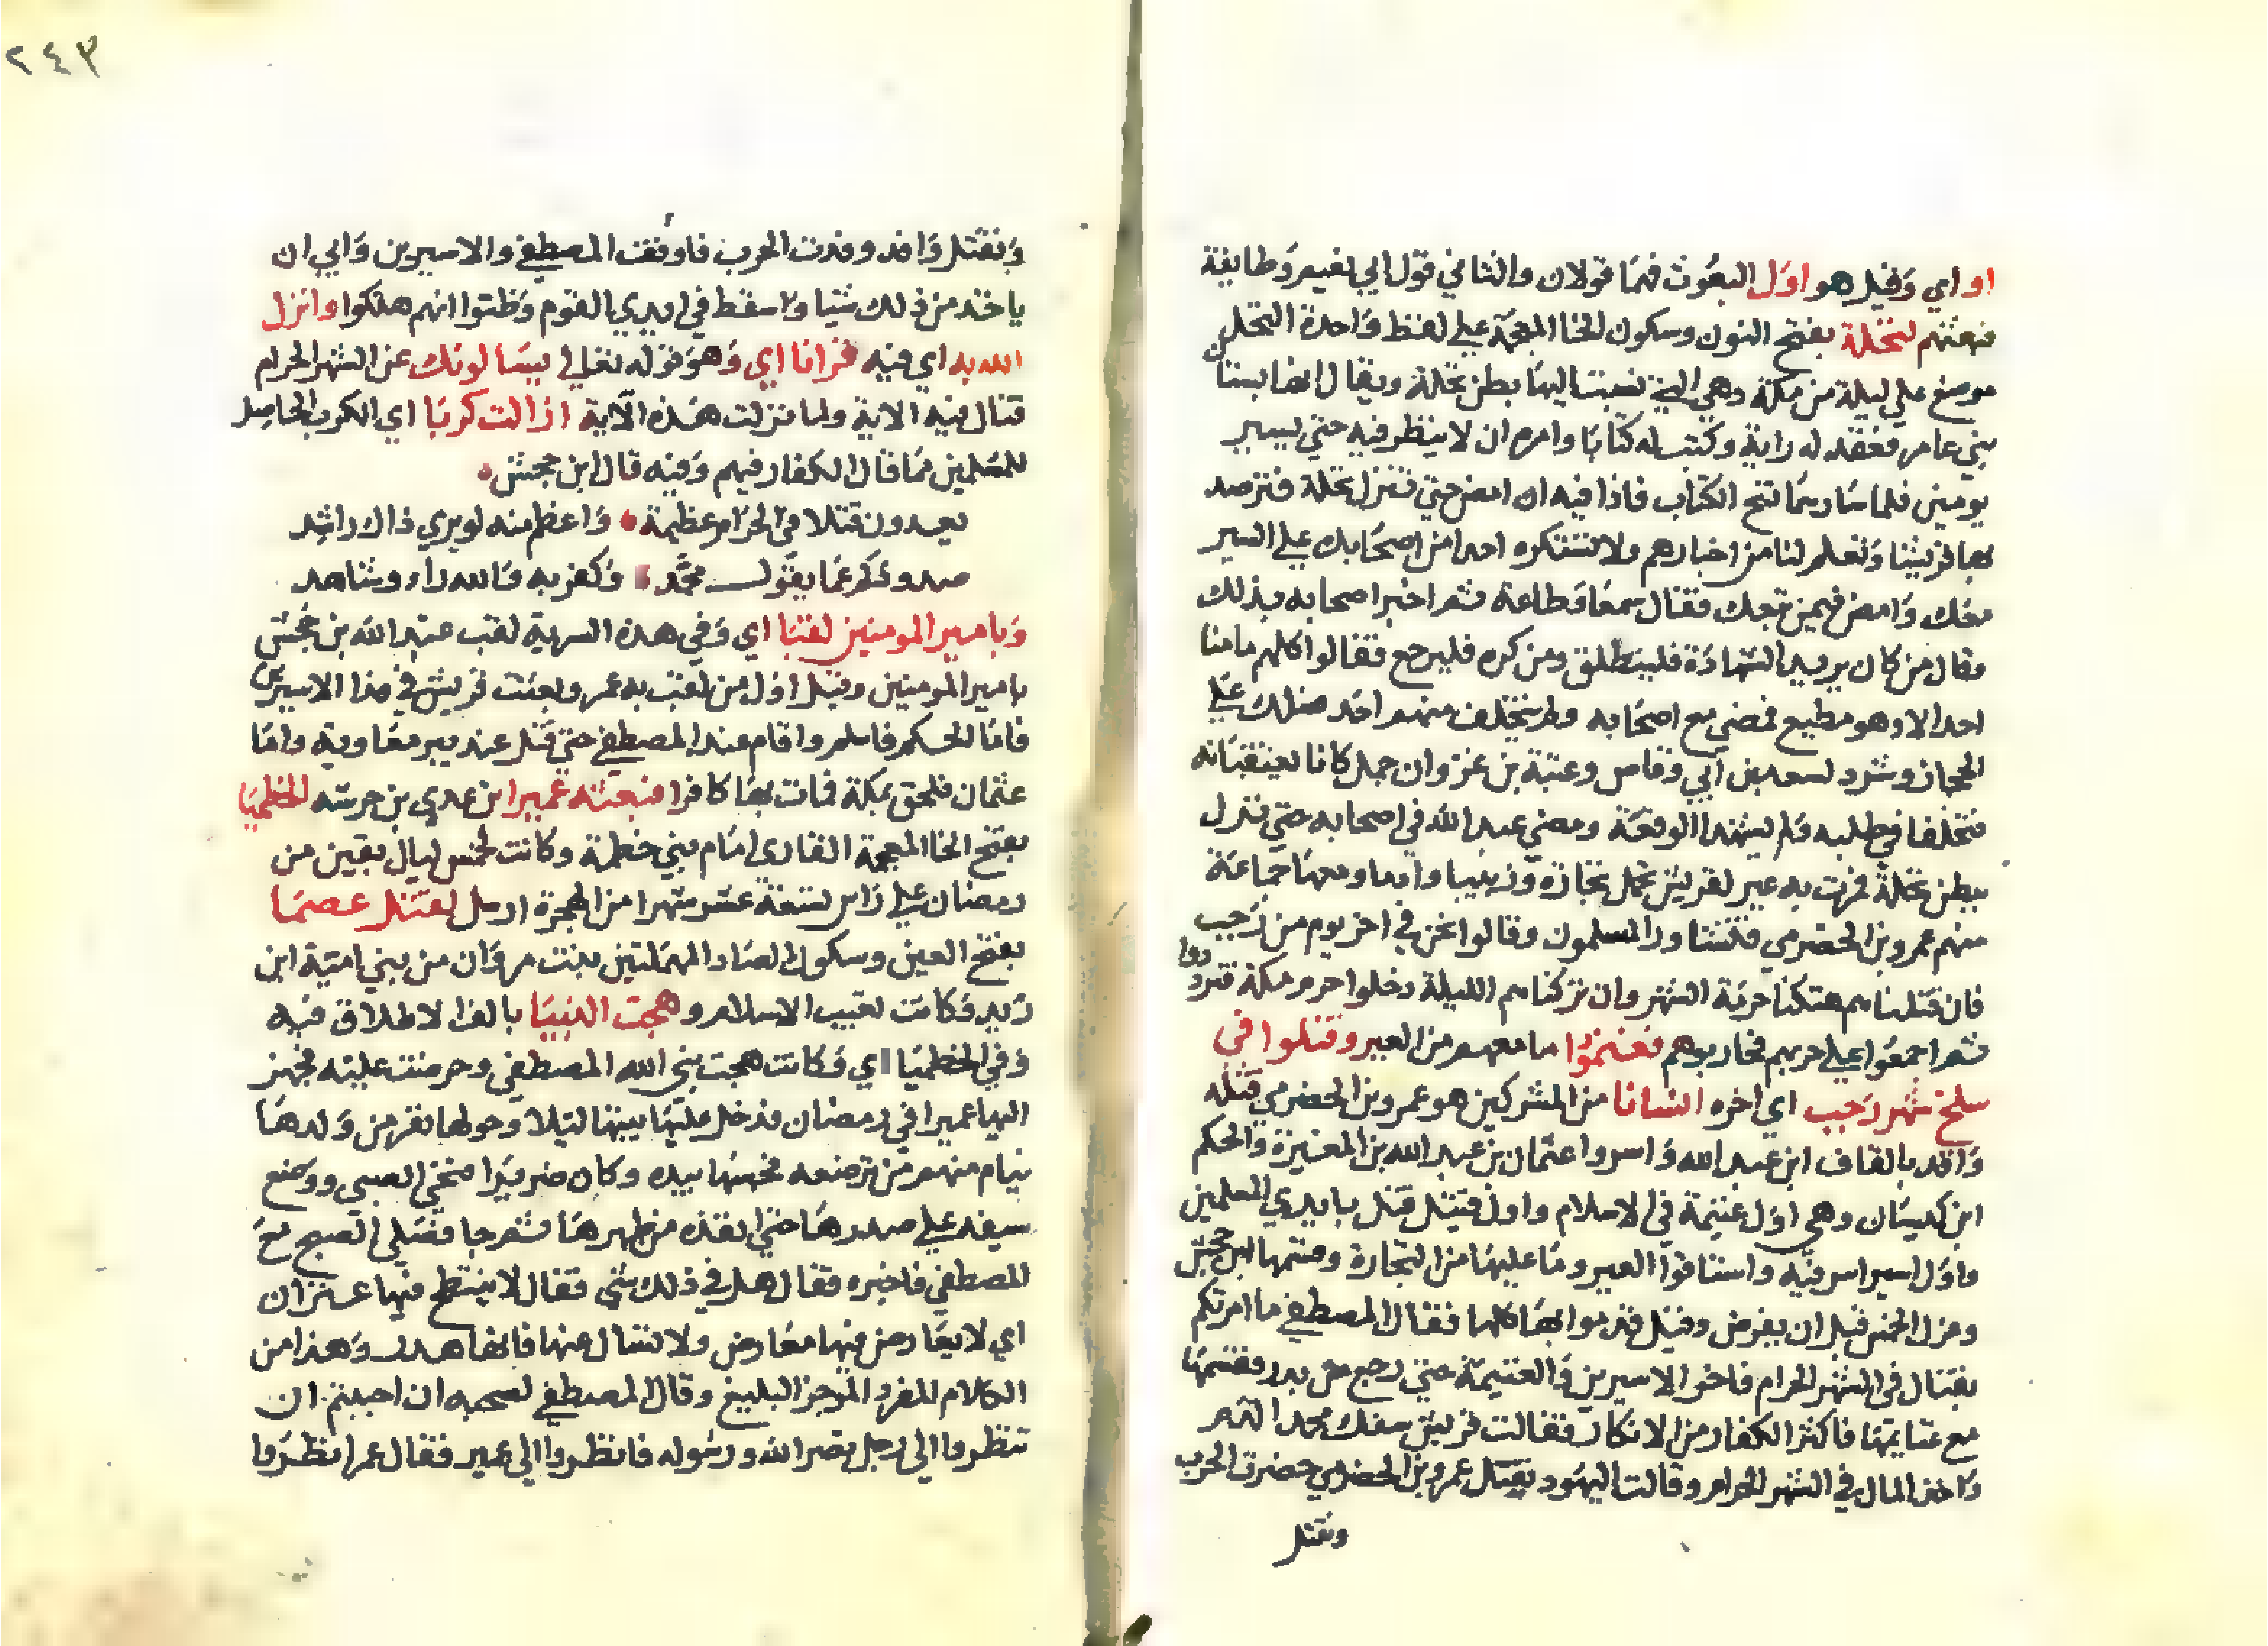 او اي وقيل هو اول البعوث فهما قولان والثاني قول ابي نعيم وطايفة
فبعثهم لنخلة بفتح النون وسكون الخا المعجمة علي لفظ واحدة النخل
موضع علي ليلة من مكة وهي التي نسبت اليها بطن نخلة ويقال لها بستان
بني عامر فعقد له راية وكتب له كتابا وامره ان لا ينظر فيه حتي يسير
يومين فلما سارهما فتح الكتاب فاذا فيه ان امض حتي تنزل نخلة فترصد
بها قريشا وتعلم لنا من اخبارهم ولا تستكره احدا من اصحابك علي السير
معك وامض فيمن تبعك فقال سمعا وطاعة ثم اخبر اصحابه بذلك
وقال من كان يريد الشهادة فلينطلق ومن كره فليرجع فقالوا كلهم ما منا
احد الا وهو مطيع فمضي مع اصحابه ولم يتخلف منهم احد فسلك علي
الحجاز وشرد لسعد بن ابي وقاص وعتبة بن غزوان جمل كانا يعتقبانه
فتخلفا في طلبه ولم يشهدا الوقعة ومضي عبد الله في اصحابه حتي نزل
ببطن نخلة فمرت به عير لقريش تحمل تجارة وزبيبا وادما ومعها جماعة
منهم عمرو بن الحضرمي فتشاور المسلمون وقالوا نحن في اخر يوم من رجب
فان قتلناهم هتكنا حرمة الشهر وان تركناهم الليلة دخلوا حرم مكة فترددوا
ثم اجمعوا علي حربهم فحاربوهم فغنموا ما معهم من العير وقتلوا في
سلخ شهر رجب اي اخره انسانا من المشركين هو عمرو بن الحضرمي قتله
واقد بالقاف ابن عبد الله واسروا عثمان بن عبد الله بن المغيرة والحكم
ابن كيسان وهي اول غنيمة في الاسلام واول قتيل قتل بايدي المسلمين
واول اسير اسر فيه واستاقوا العير وما عليها من التجارة وقسمها ابن جحش
وعزل الخمس قبل ان يفرض وقيل قدموا بها كلها فقال المصطفي ما امرتكم
بقتال في الشهر الحرام فاخر الاسيرين والغنيمة حتي رجع من بدر فقسمها
مع غنايمها فاكثر الكفار من الانكار فقالت قريش سفك محمد الدم
واخذ المال في الشهر الحرام وقالت اليهود بقتل عمرو بن الحضرمي حضرت الحرب
وبقتل
٢٤٣
وبقتل واقد وقدت الحرب فاوقف المصطفي والاسيرين وابي ان
ياخذ من ذلك شيا واسقط في ايدي القوم وظنوا انهم هلكوا وانزل
الله به اي فيه قرانا اي وهو قوله تعالي يسالونك عن الشهر الحرام
قتال فيه الاية ولما نزلت هذه الآية ازالت كربا اي الكرب الحاصل
للمسلمين مما قال الكفار فيهم وفيه قال ابن جحش
يعدون قتلا في الحرام عظيمة واعظم منه لو يري ذاك راشد
صدودكم عما يقول محمد وكفر به والله راء وشاهد
وبامير المومنين لقبا اي وفي هذه السرية لقب عبد الله بن جحش
بامير المومنين وقيل اول من لقب به عمر وبعثت قريش في فدا الاسيرين
فاما الحكم فاسلم واقام عند المصطفي حتي قتل عند بير معاوية واما
عثمان فلحق بمكة فمات بها كافرا فبعثه عميرا ابن عدي بن خرشه الخطميا
بفتح الخا المعجمة القاري امام بني خطمة وكانت لخمس ليال بقين من
رمضان علي راس تسعة عشر شهرا من الهجرة ارسل لقتل عصما
بفتح العين وسكون الصاد المهملتين بنت مروان من بني امية ابن
زيد وكانت تعيب الاسلام وهجت النبيا بالف الاطلاق فيه
وفي الخطميا اي وكانت هجت نبي الله المصطفي وحرضت عليه فجهز
اليها عميرا في رمضان فدخل عليها بيتها ليلا وحولها نفر من ولدها
نيام منهم من ترضعه فجسها بيده وكان ضريرا فنحي الصبي ووضع
سيفه علي صدرها حتي انفذه من ظهرها ثم رجا فصلي الصبح مع
المصطفي فاخبره فقال هل في ذلك شي فقال لا ينتطح فيها عنزان
اي لا يعارض فيها معارض ولا تسال عنها فانها هدر وهذا من
الكلام المفرد الموجز البليغ وقال المصطفي لصحبه ان احببتم ان
تنظروا الي رجل نصر الله ورسوله فانظروا الي عمير فقال عمر انظروا